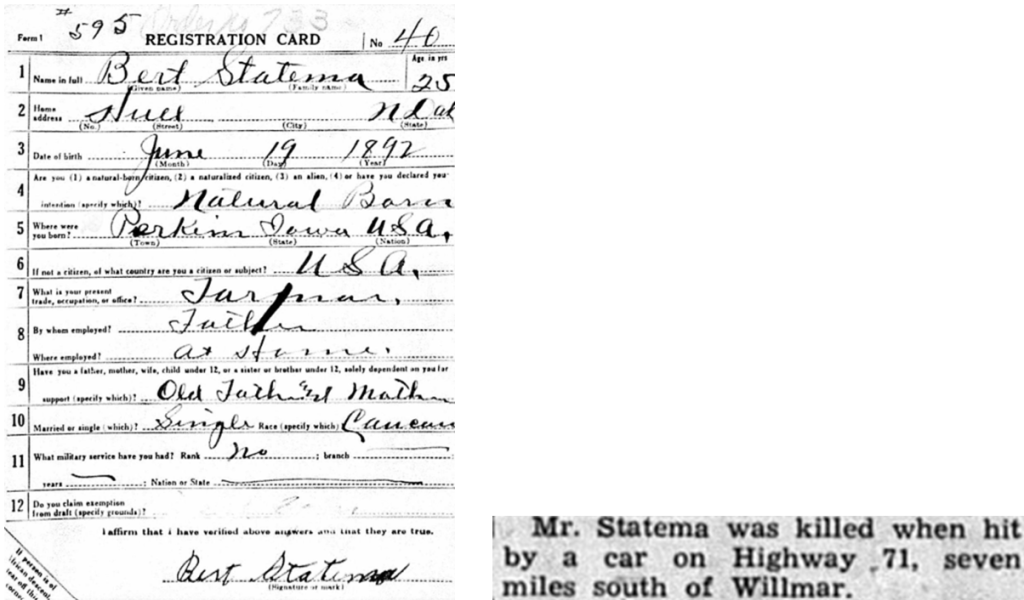 # 595
Form 1 REGISTRATION CARD No 40
1 Name in full Bert Statema Age in yrs 25
(Given name) (Family name)
2 Home address Hull N Dak
(No.) (Street) (City) (State)
3 Date of birth June 19 1892
(Month) (Day) (Year)
4 Are you (1) a natural-born citizen, (2) a naturalized citizen, (3) an alien, (4) or have you declared your
intention (specify which)? Natural Born
5 Where were you born? Perkins Iowa U.S.A.
(Town) (State) (Nation)
6 If not a citizen, of what country are you a citizen or subject? U S A.
7 What is your present trade, occupation, or office? Farmer.
8 By whom employed? Father
Where employed? at Home.
9 Have you a father, mother, wife, child under 12, or a sister or brother under 12, solely dependent on you for
support (specify which)? Old Father and Mother
10 Married or single (which)? Single Race (specify which)
11 What military service have you had? Rank No ; branch
years ; Nation or State
12 Do you claim exemption from draft (specify grounds)?
I affirm that I have verified above answers and that they are true.
Bert Statema
(Signature or mark)
If person is of
Mr. Statema was killed when hit
by a car on Highway 71, seven
miles south of Willmar.